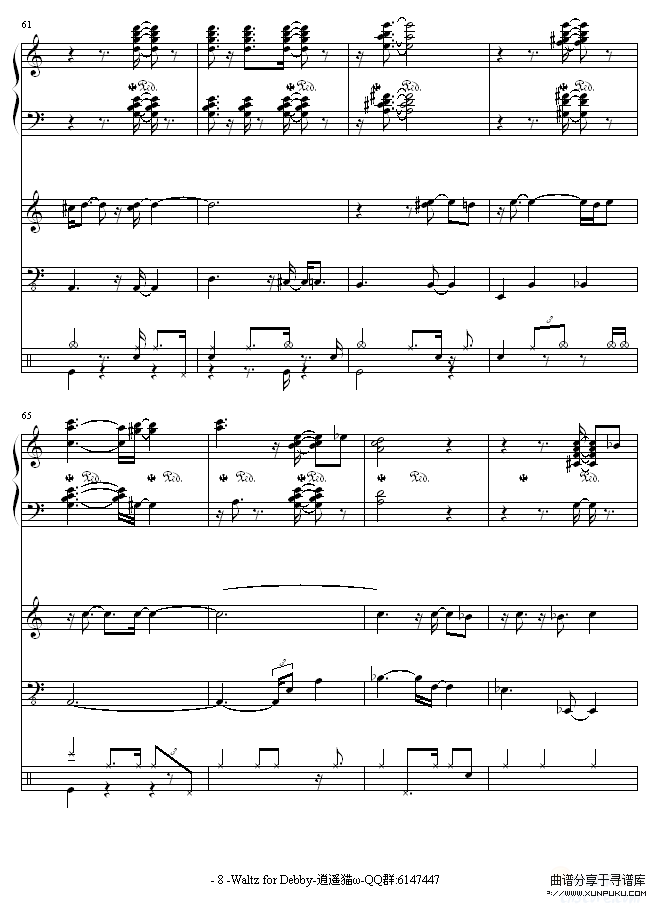 61
65
- 8 -Waltz for Debby-逍遥猫ω-QQ群:6147447
曲谱分享于寻谱库
www.xunpuku.com